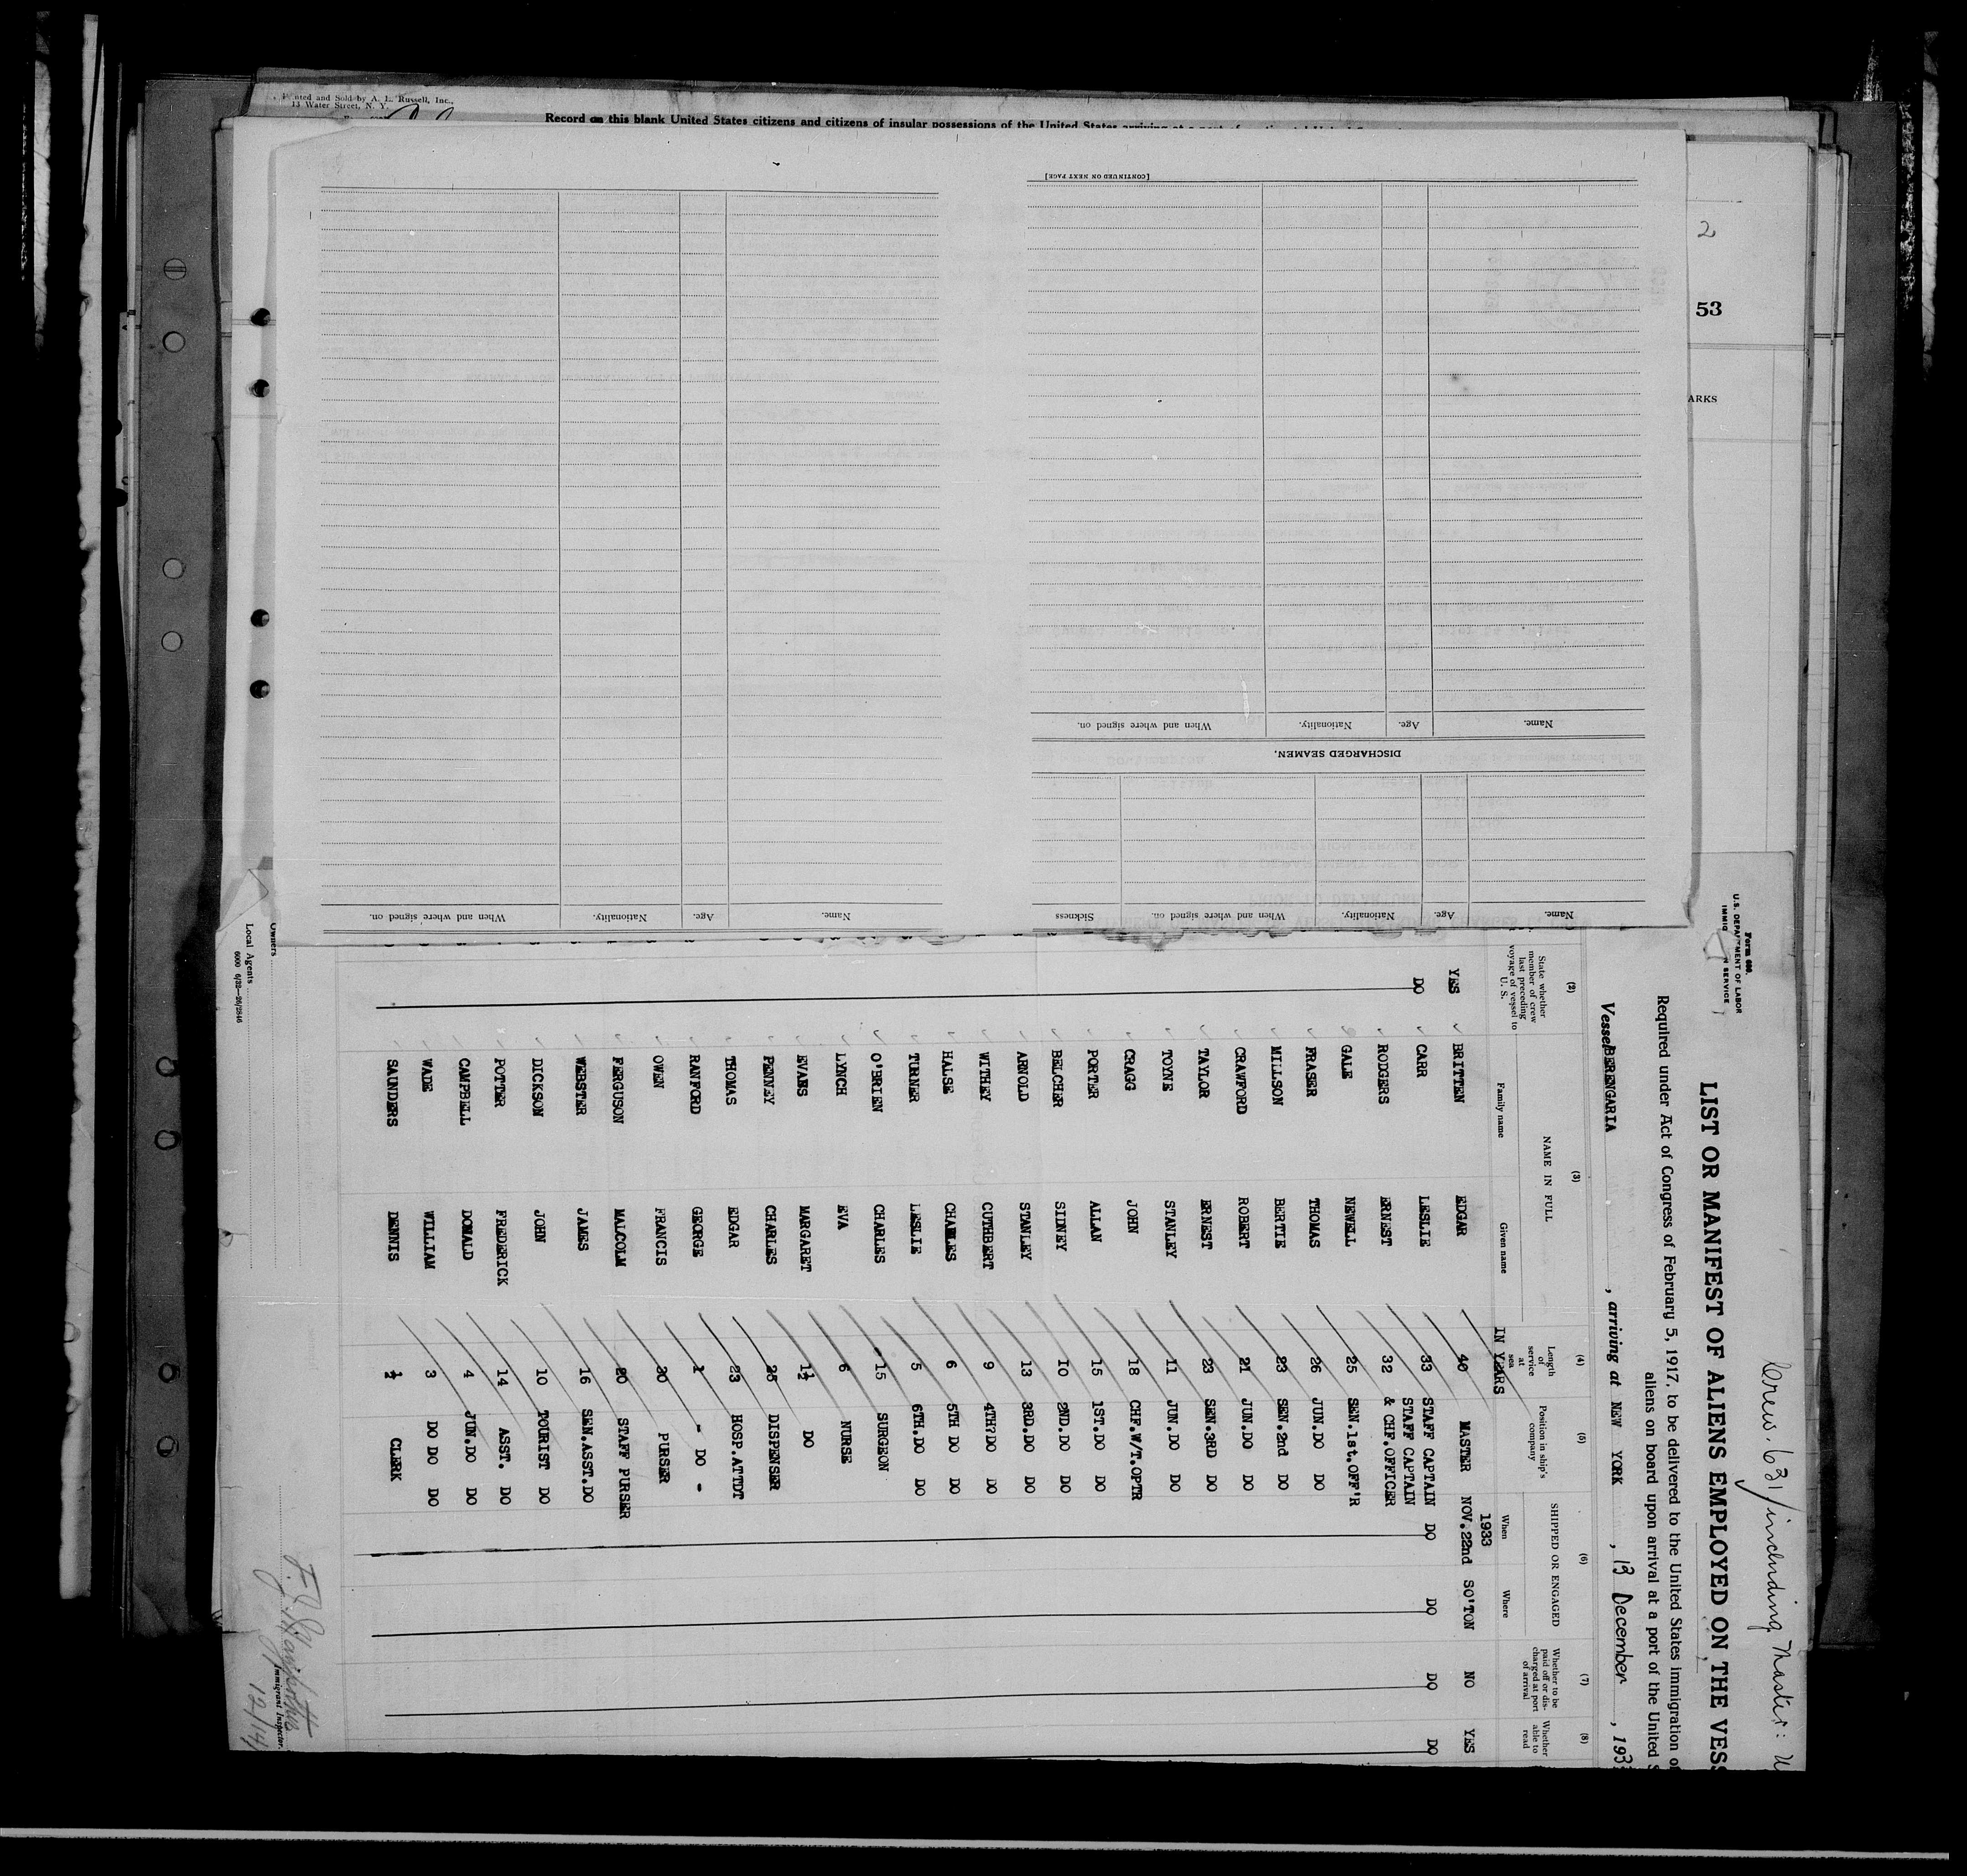 Printed and Sold by A. L. Russell, Inc.,
13 Water Street, N. Y.
Record on this blank United States citizens and citizens of insular possessions of the United States arriving at a port of
2
53
ARKS
[CONTINUED ON NEXT PAGE]
Name. Age. Nationality. When and where signed on.
DISCHARGED SEAMEN.
Name. Age. Nationality. When and where signed on. Sickness
Name. Age. Nationality. When and where signed on.
Crew. 631/including Master:
Form 680
U.S. DEPARTMENT OF LABOR
IMMIG N SERVICE
LIST OR MANIFEST OF ALIENS EMPLOYED ON THE VESS
Required under Act of Congress of February 5, 1917, to be delivered to the United States immigration o
aliens on board upon arrival at a port of the United S
Vessel BERENGARIA , arriving at NEW YORK , 13 December , 193
(2) (3) (4) (5) (6) (7) (8)
State whether member of crew last preceding voyage of vessel to U. S.
NAME IN FULL
Family name Given name
Length of service at sea
IN YEARS
Position in ship's company
SHIPPED OR ENGAGED
When Where
Whether to be paid off or discharged at port of arrival
Whether able to read
1933
YES BRITTEN EDGAR 40 MASTER NOV.22nd SO'TON NO YES
DO CARR LESLIE 33 STAFF CAPTAIN DO DO DO DO
STAFF CAPTAIN
RODGERS ERNEST 32 & CHF.OFFICER
GALE NEWELL 25 SEN.1st.OFF'R
FRASER THOMAS 26 JUN.DO DO
MILLSON BERTIE 23 SEN.2nd DO
CRAWFORD ROBERT 21 JUN.DO DO
TAYLOR ERNEST 23 SEN.3RD DO
TOYNE STANLEY 11 JUN.DO DO
CRAGG JOHN 18 CHF.W/T.OPTR
PORTER ALLAN 15 1ST.DO DO
BELCHER SIDNEY 10 2ND.DO DO
ARNOLD STANLEY 13 3RD.DO DO
WITHEY CUTHBERT 9 4TH?DO DO
HALSE CHARLES 6 5TH DO DO
TURNER LESLIE 5 6TH.DO DO
O'BRIEN CHARLES 15 SURGEON
LYNCH EVA 6 NURSE
EVANS MARGARET 1½ DO
PENNEY CHARLES 28 DISPENSER
THOMAS EDGAR 23 HOSP.ATTDT
RANFORD GEORGE 1 - DO -
OWEN FRANCIS 30 PURSER
FERGUSON MALCOLM 20 STAFF PURSER
WEBSTER JAMES 16 SEN.ASST.DO
DICKSON JOHN 10 TOURIST DO
POTTER FREDERICK 14 ASST. DO
CAMPBELL DONALD 4 JUN.DO DO
WADE WILLIAM 3 DO DO DO
SAUNDERS DENNIS ½ CLERK
Owners
Local Agents
6000 6/32—26/2846
Immigrant Inspector.
12/14/